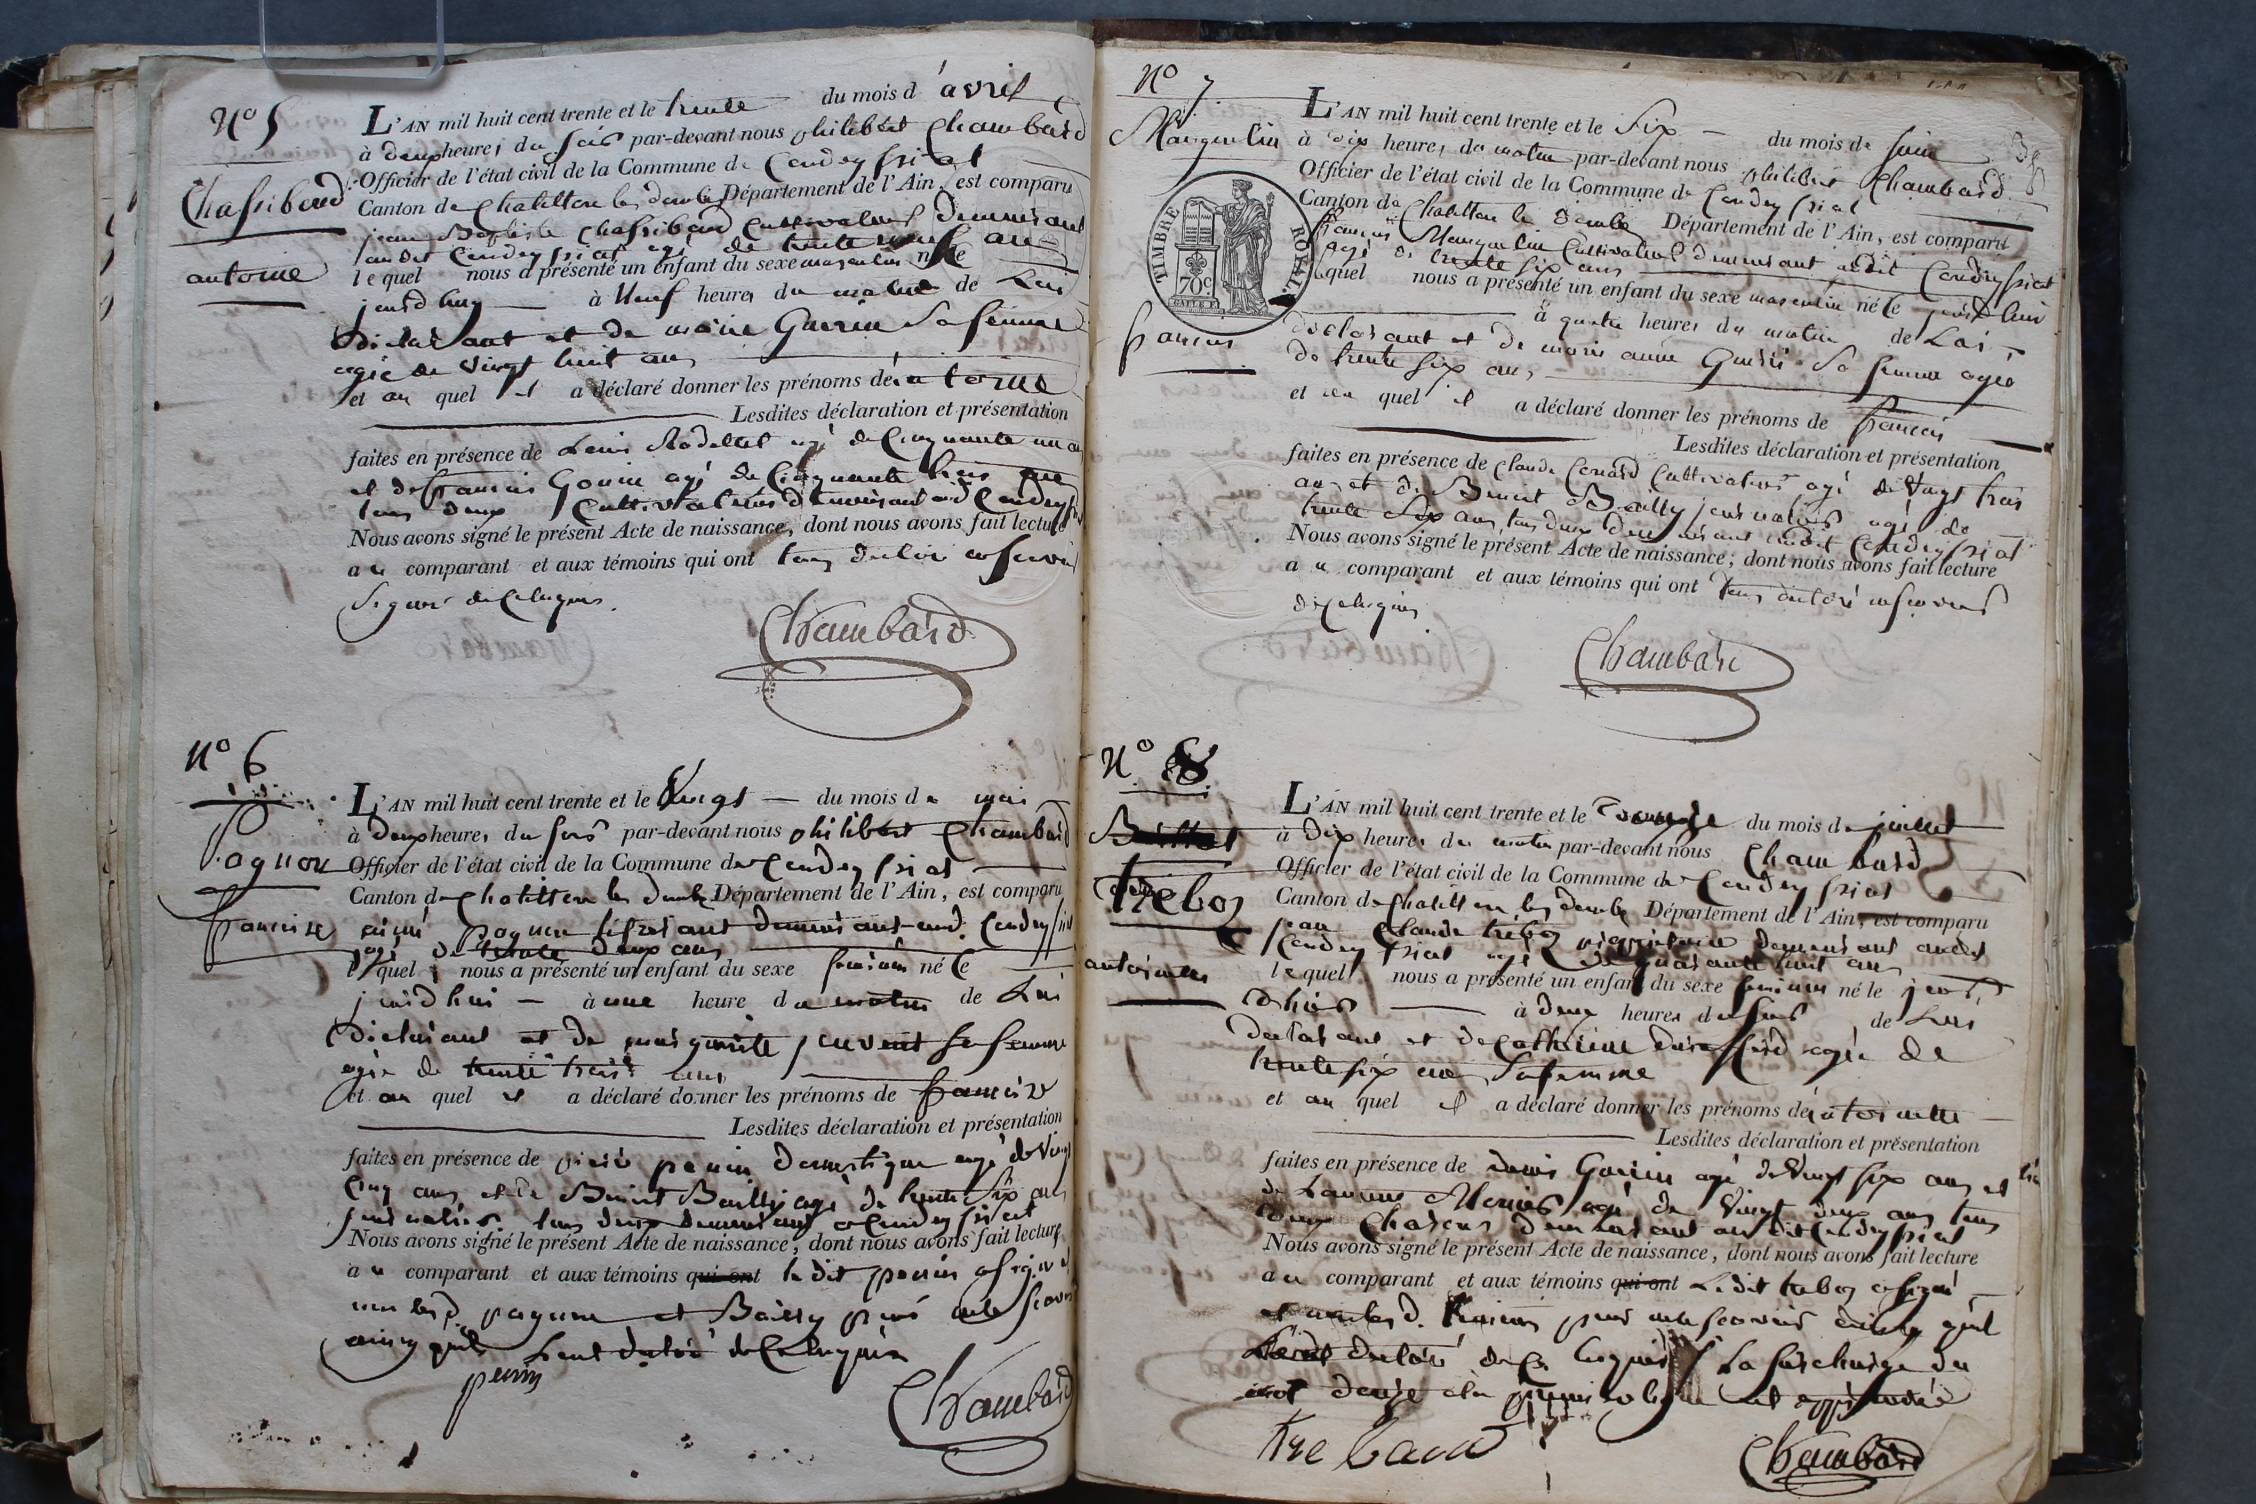 N° 5
Chassiboud
antoine
L'AN mil huit cent trente et le trente du mois d'avril
à deux heures du soir par-devant nous philibert Chambard
Officier de l'état civil de la Commune de Condeyssiat
Canton de Chatillon les dombes Département de l'Ain, est comparu
jean Baptiste Chassiboud Cultivateur demeurant
audit Condeyssiat agé de trente neuf ans
lequel nous a présenté un enfant du sexe masculin né le
jourd'huy à Neuf heures du matin de Lui
Déclarant et de marie Guerin Sa femme
agée de Vingt huit ans
et au quel il a déclaré donner les prénoms d'antoine
Lesdites déclaration et présentation
faites en présence de Louis Rodellet agé de Cinquante un an
et de francois Gouin agé de Cinquante trois ans
tous deux Cultivateurs demeurant aud Condeyssiat
Nous avons signé le présent Acte de naissance, dont nous avons fait lecture
au comparant et aux témoins qui ont tous déclaré ne savoir
Signer de Ce requis.
Chambard
N° 6
Pagnon
francoise
L'AN mil huit cent trente et le Vingt du mois de mai
à deux heures du soir par-devant nous philibert Chambard
Officier de l'état civil de la Commune de Condeyssiat
Canton de Chatillon les dombes Département de l'Ain, est comparu
aimé pagnon demeurant aud. Condeyssiat
agé de trente deux ans
lequel nous a présenté un enfant du sexe feminin né le
jourd'hui à une heure du matin de Lui
Déclarant et de marguerite sa femme
agée de trente trois ans
et au quel il a déclaré donner les prénoms de francoise
Lesdites déclaration et présentation
faites en présence de pierre perrin Domestique agé de Vingt
Cinq ans et de Benoit Bailly agé de trente Six ans
journalier tous deux demeurant a Condeyssiat
Nous avons signé le présent Acte de naissance, dont nous avons fait lecture
au comparant et aux témoins qui ont le dit perrin a signé
non lesd. pagnon et Bailly pour ne le Savoir
ainsy qu'ils L'ont déclaré de Ce requis
perrin
Chambard
N° 7
Manguelin
francois
TIMBRE ROYAL
70c
L'AN mil huit cent trente et le Six du mois de juin
à dix heures du matin par-devant nous philibert Chambard
Officier de l'état civil de la Commune de Condeyssiat
Canton de Chatillon les Dombes Département de l'Ain, est comparu
francois Manguelin Cultivateur demeurant audit Condeyssiat
agé de trente six ans
lequel nous a présenté un enfant du sexe masculin né le jourd'hui
à quatre heures du matin de Lui
déclarant et de marie anne Sa femme agée
de trente six ans
et au quel il a déclaré donner les prénoms de francois
Lesdites déclaration et présentation
faites en présence de Claude Cultivateur agé de Vingt trois
ans et de Benoit Bailly journalier agé de
trente Six ans tous deux demeurant audit Condeyssiat
Nous avons signé le présent Acte de naissance; dont nous avons fait lecture
au comparant et aux témoins qui ont tous déclaré ne savoir
de Ce requis
Chambard
N° 8
treboz
antoinette
L'AN mil huit cent trente et le douze du mois de juillet
à Dix heures du matin par-devant nous Chambard
Officier de l'état civil de la Commune de Condeyssiat
Canton de Chatillon les dombes Département de l'Ain, est comparu
jean Claude tréboz propriétaire demeurant audit
Condeyssiat agé de quarante huit ans
lequel nous a présenté un enfant du sexe feminin né le jour
d'hier à deux heures du soir de Lui
déclarant et de Catherine agée de
trente six ans Sa femme
et au quel il a déclaré donner les prénoms d'antoinette
Lesdites déclaration et présentation
faites en présence de denis Guerin agé de Vingt six ans et
de Laurent agé de Vingt deux ans tous
deux demeurant au dit Condeyssiat
Nous avons signé le présent Acte de naissance, dont nous avons fait lecture
au comparant et aux témoins qui ont Le dit treboz a signé
et non lesd. témoins pour ne savoir ainsy qu'il
L'ont déclaré de Ce requis La surcharge du
mot douze a la premiere ligne est approuvée
Chambard